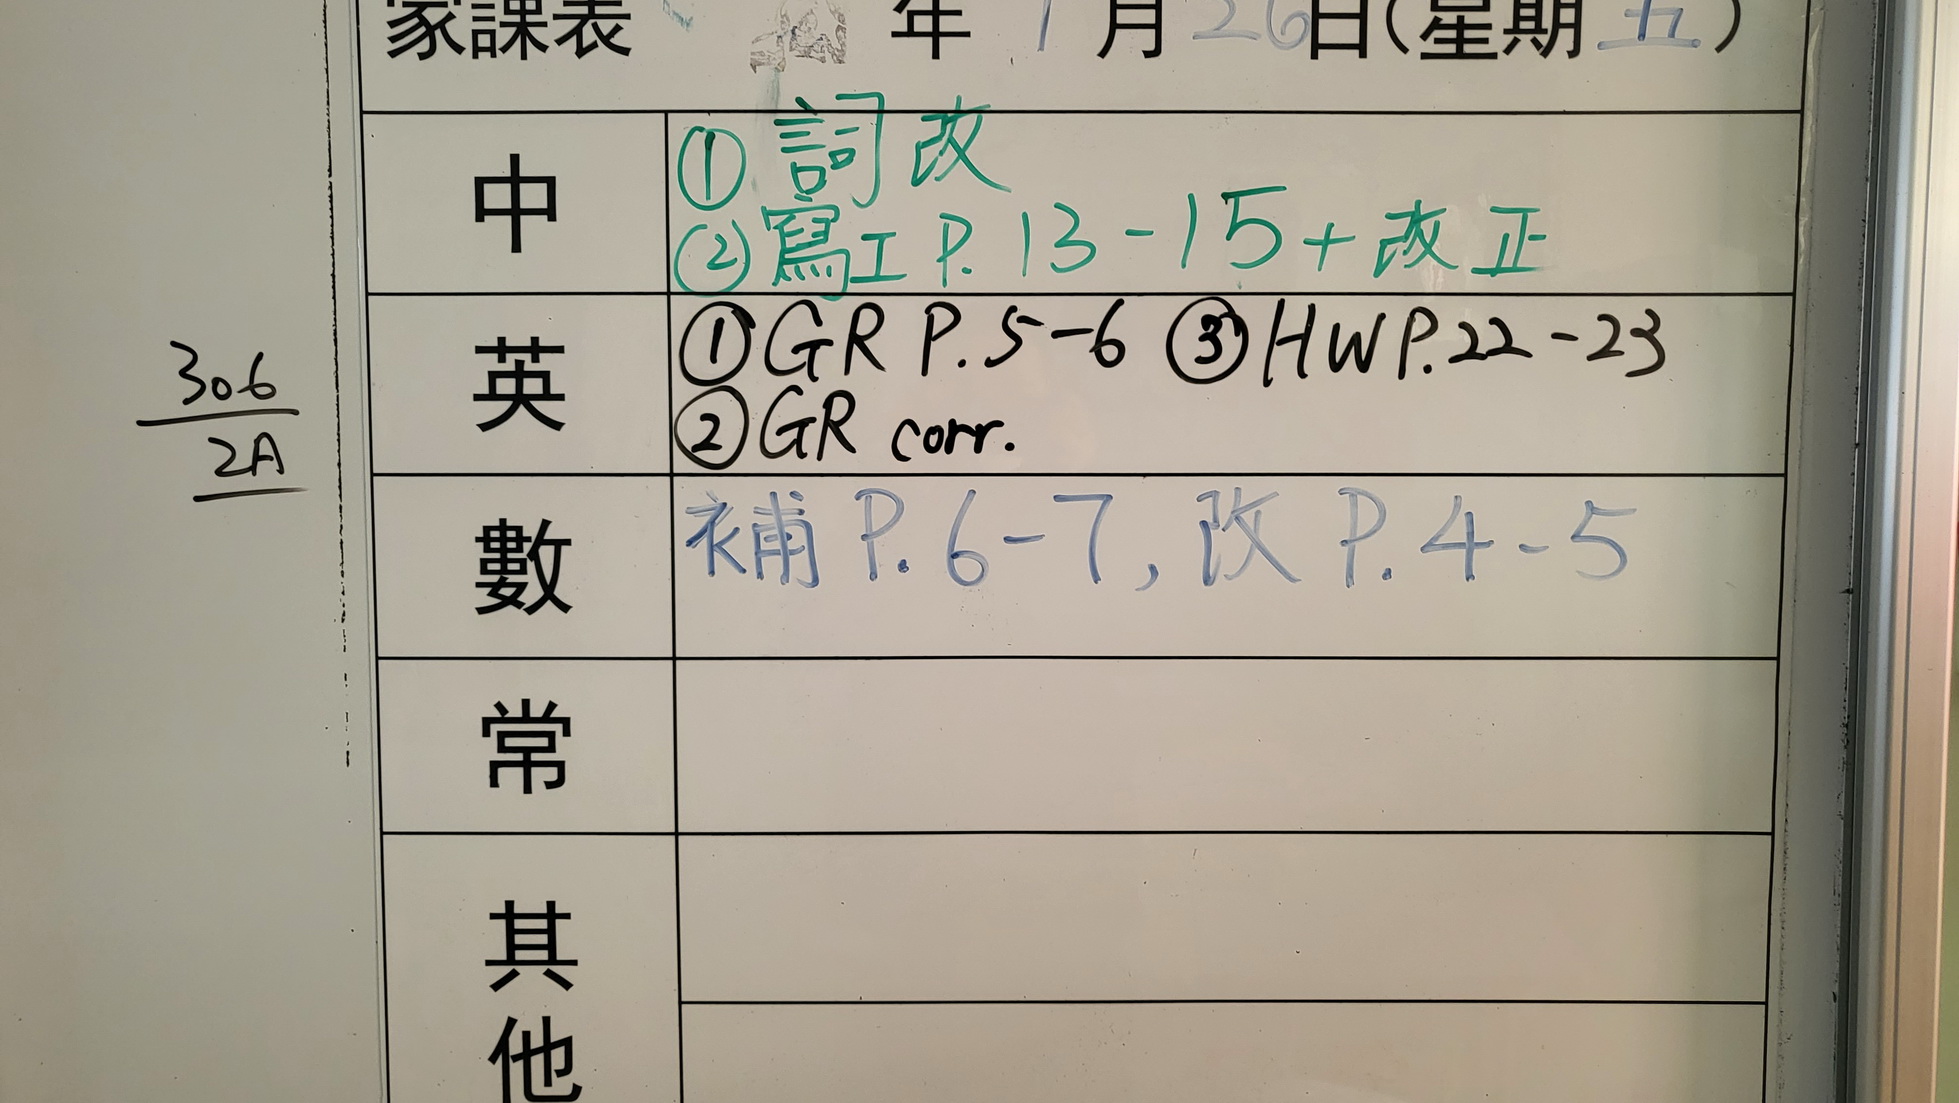 家課表 年 1 月 26 日(星期 五)
中
① 詞改
② 寫工 P. 13 - 15 + 改正
英
① GR P. 5-6 ③ HW P. 22 - 23
② GR corr.
數
補 P. 6-7, 改 P. 4-5
常
其他
306
2A